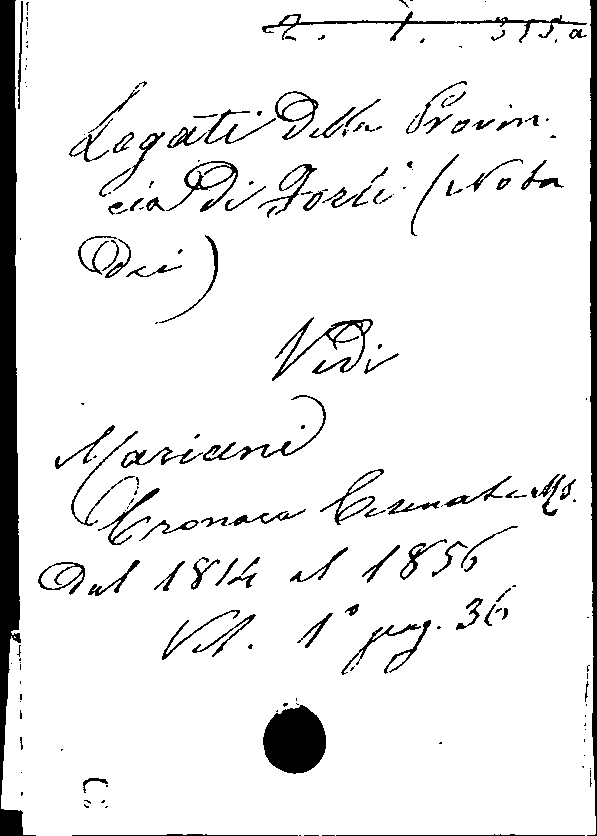 2. 1. 355.a
Legati della Provin-
cia di Forlì (Nota
dei)
Vedi
Mariani
Cronaca Cesenate Ms.
dal 1814 al 1856
Vol. 1° pag. 36